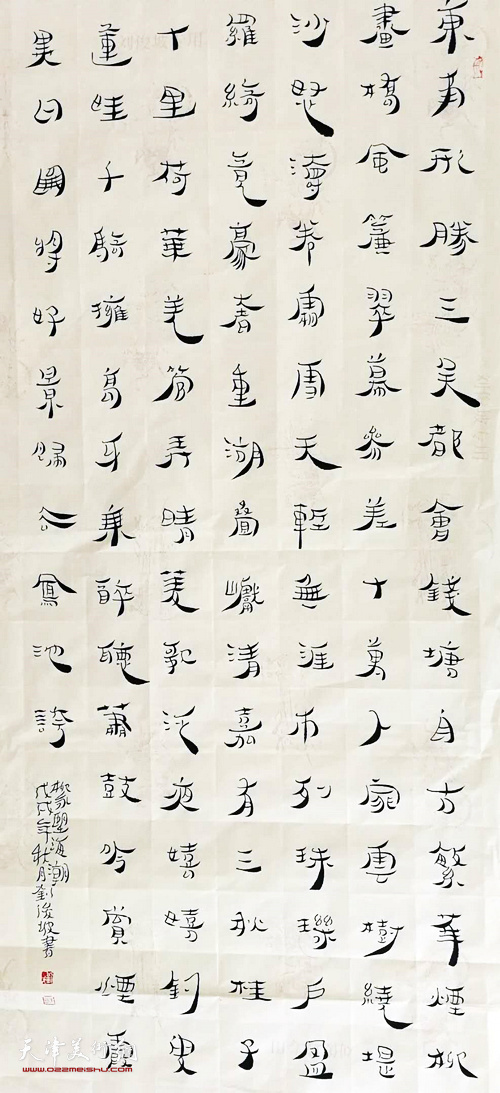 東南形勝三吴都會錢塘自古繁華煙柳
畫橋風簾翠幕參差十萬人家雲樹繞堤
沙怒濤卷霜雪天塹無涯市列珠璣戶盈
羅綺競豪奢重湖疊巘清嘉有三秋桂子
十里荷華羌管弄晴菱歌泛夜嬉嬉釣叟
蓮娃千騎擁高牙乘醉聽蕭鼓吟賞煙霞
異日圖將好景歸去鳳池誇
柳永望海潮
戊戌年秋月劉俊坡書
天津美术网
www.022meishu.com